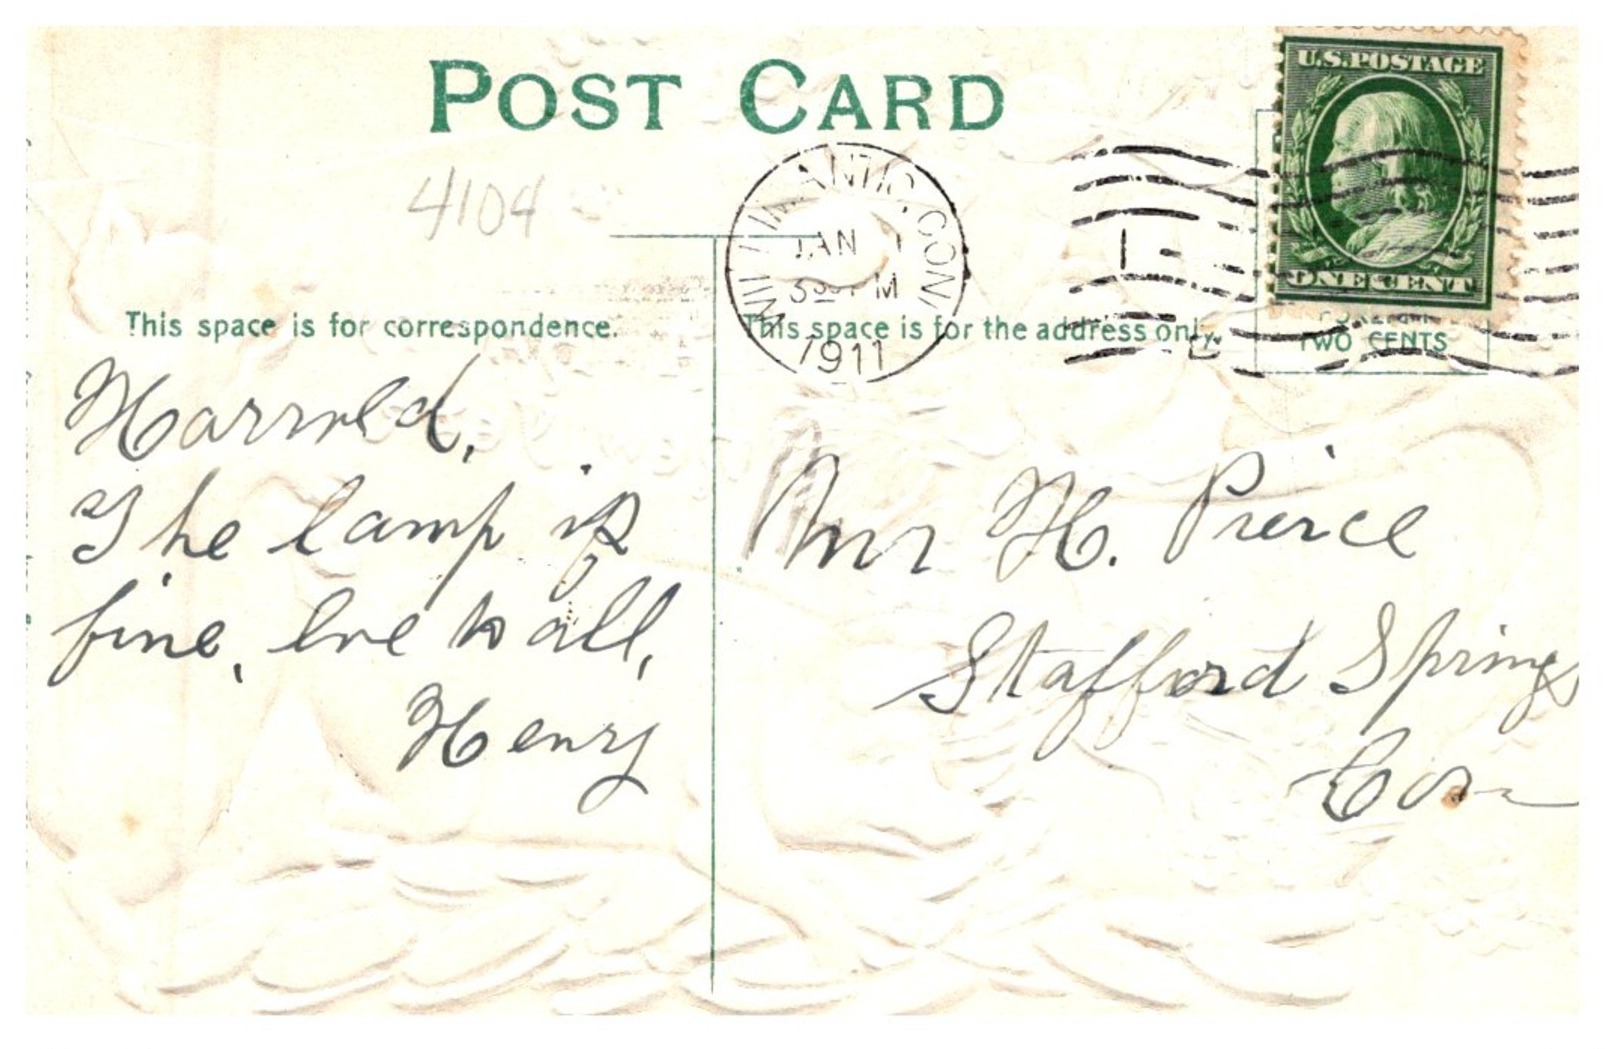 POST CARD
U.S. POSTAGE
ONE CENT
4104
WILLIMANTIC, CONN.
JAN 1
M
1911
This space is for correspondence.
This space is for the address only.
TWO CENTS
Harrold,
The lamp is
fine, love to all,
Henry
Mr H. Pierce
Stafford Springs
Con